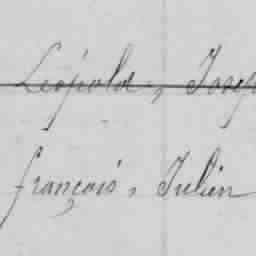 Léopold, Josep
françois, Julien